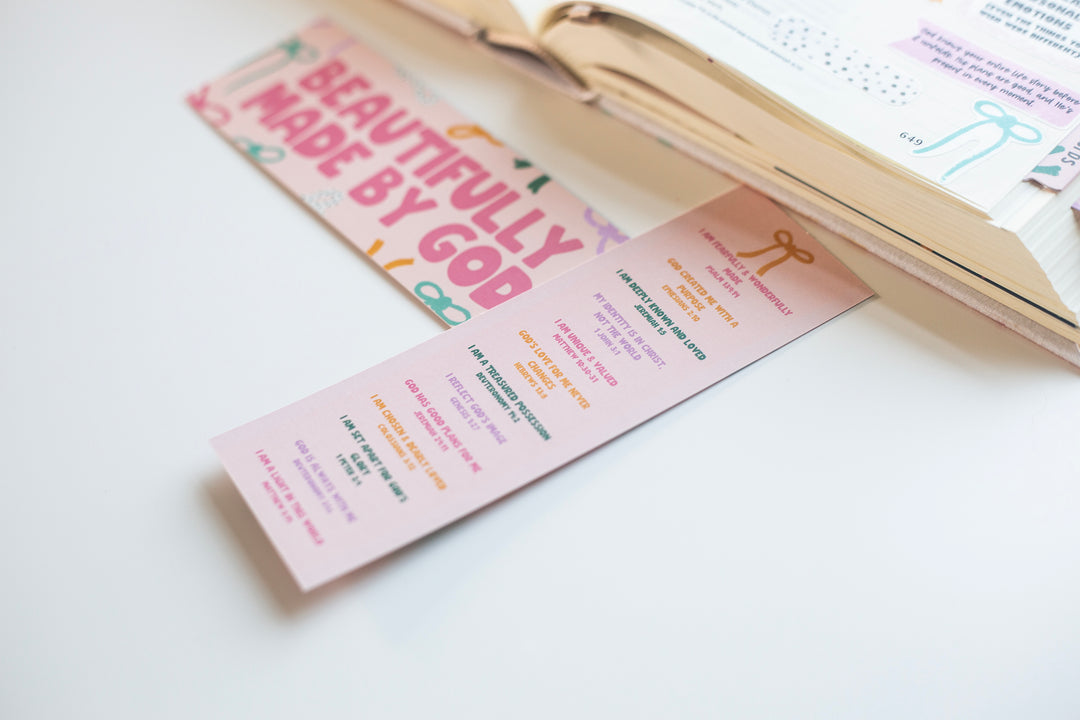 BEAUTIFULLY
MADE BY GOD
I AM FEARFULLY & WONDERFULLY
MADE
PSALM 139:14
GOD CREATED ME WITH A
PURPOSE
EPHESIANS 2:10
I AM DEEPLY KNOWN AND LOVED
JEREMIAH 1:5
MY IDENTITY IS IN CHRIST,
NOT THE WORLD
1 JOHN 3:1
I AM UNIQUE & VALUED
MATTHEW 10:30-31
GOD'S LOVE FOR ME NEVER
CHANGES
HEBREWS 13:8
I AM A TREASURED POSSESSION
DEUTERONOMY 14:2
I REFLECT GOD'S IMAGE
GENESIS 1:27
GOD HAS GOOD PLANS FOR ME
JEREMIAH 29:11
I AM CHOSEN & DEARLY LOVED
COLOSSIANS 3:12
I AM SET APART FOR GOD'S
GLORY
1 PETER 2:9
GOD IS ALWAYS WITH ME
DEUTERONOMY
I AM A LIGHT IN THIS WORLD
MATTHEW
EMOTIONS
(EVEN THE THINGS
WISH WERE DIFFERENT)
God knows your entire life story before
it unfolds. His plans are good, and He's
present in every moment.
649